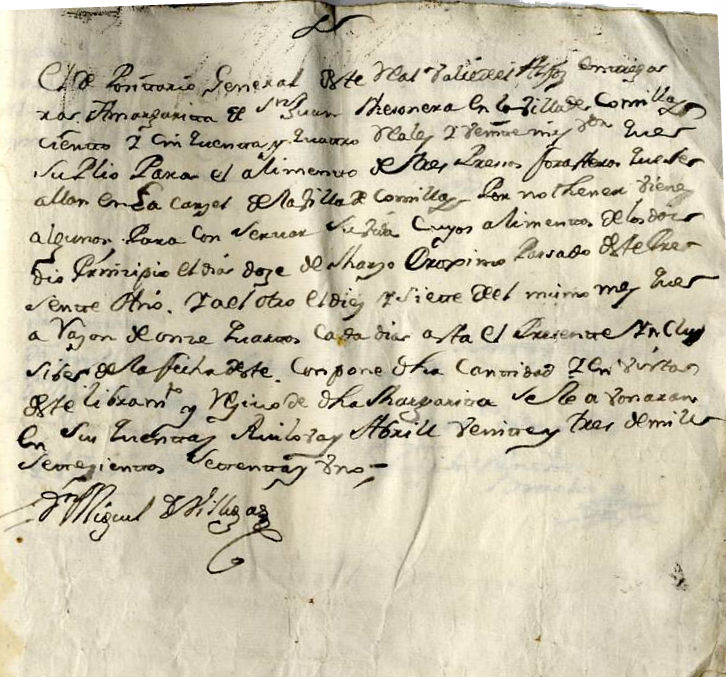 El de Positario General deste Real Valle del Alfoz entregar
ras Amargarita de Sn Juan Mesonera en la Villa de Comillas
ciento y cinquenta y quatro Reales y Veinte mrs Von que
suplio Para el alimento de dos Presos forasteros que se
allan en La carzel de la Villa de Comillas Por no thener Vienes
algunos Para con servar su Vida Cuyos alimentos de los dos
dio Prinzipio el dia doze de Marzo Proximo Pasado deste Pre
sente Año. Y a el otro el diez y siete del mismo mes que
a Razon de onze quartos cada dia asta el Presente Ynclu
sibes de la fecha deste. Compone dha Cantidad y en Virtud
deste libramto y Rezivo de dha Margarita se le a Vonaran
en sus quentas Ruiloba y Abrill Veinte y tres de mill
Setezientos Setenta y Uno
Dn Miguel de Villegas